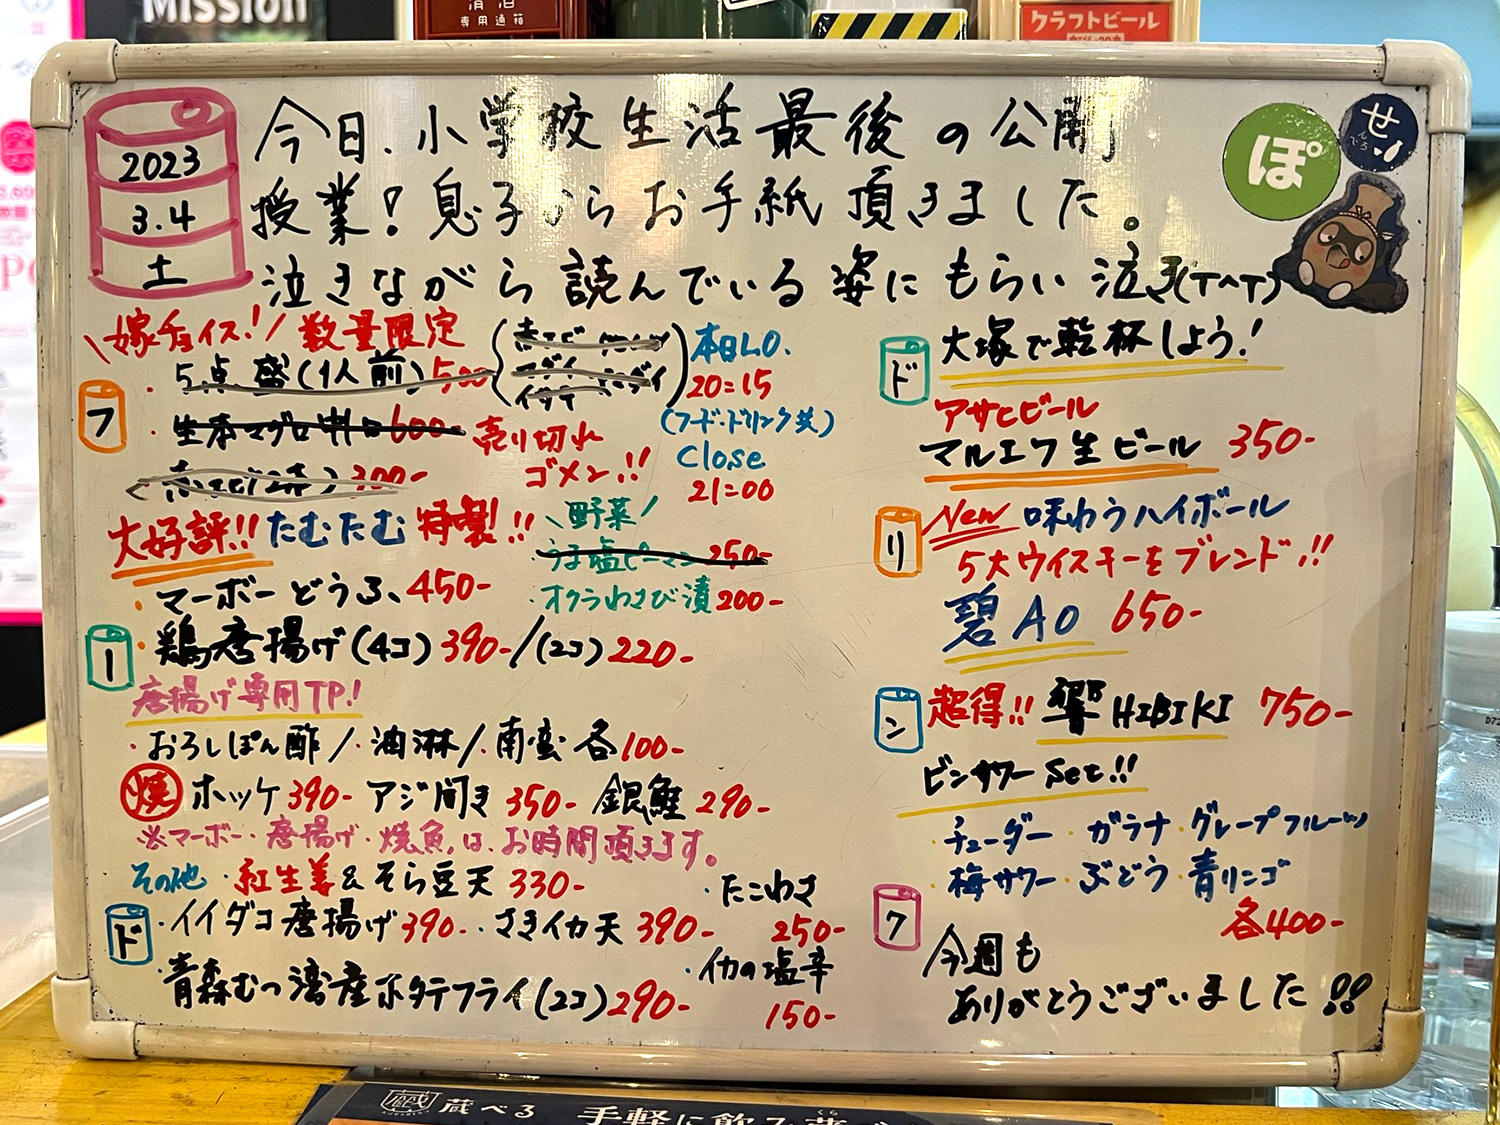 Mission
専用通箱
クラフトビール
2023
3.4
土
今日、小学校生活最後の公開
授業!息子からお手紙頂きました。
泣きながら読んでいる姿にもらい泣き(T^T)
ぽ
せ
んべろ
\嫁チョイス!/数量限定
・5点盛(1人前)500
・生本マグロ 600-
売り切れ
ゴメン!!
300-
本日L.O.
20:15
(フード・ドリンク共)
Close
21:00
フ
大好評!!たむたむ特製!!
・マーボーどうふ、450-
\野菜/
うま塩ピーマン 250-
・オクラわさび漬 200-
ー
・鶏唐揚げ(4コ)390-/(2コ)220-
唐揚げ専用TP!
・おろしぽん酢/・油淋/・南蛮 各100-
焼 ホッケ390- アジ開き350- 銀鮭290-
※マーボー・唐揚げ・焼魚は、お時間頂きます。
その他 ・紅生姜&そら豆天 330-
ド
・イイダコ唐揚げ390- ・さきイカ天 390-
・青森むつ湾産ホタテフライ(2コ)290-
・たこわさ
250-
・イカの塩辛
150-
ド
大塚で乾杯しよう!
アサヒビール
マルエフ生ビール 350-
リ
New 味わうハイボール
5大ウイスキーをブレンド!!
碧Ao 650-
ン
超得!! 響 HIBIKI 750-
ビンサワーSet!!
・チューダー ・ガラナ・グレープフルーツ
・梅サワー・ぶどう・青リンゴ
各400-
ク
今週も
ありがとうございました!!
蔵べる 手軽に飲み
くら